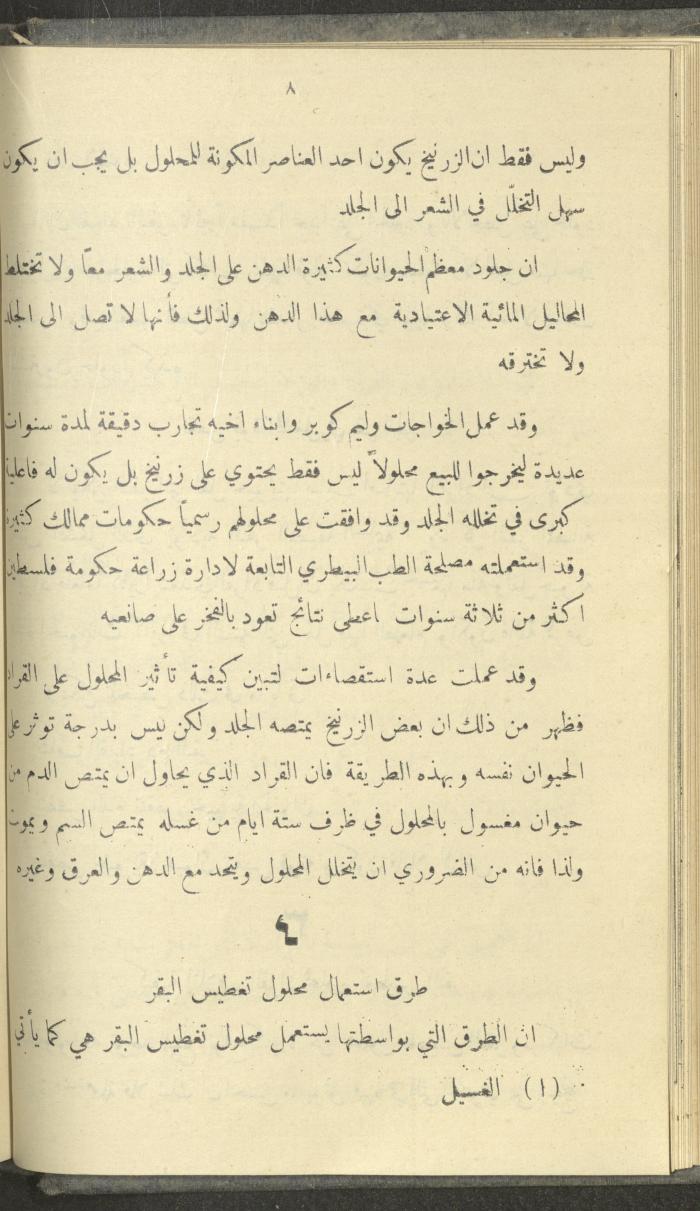 ٨
وليس فقط ان الزرنيخ يكون احد العناصر المكونة للمحلول بل يجب ان يكون
سهل التخلّل في الشعر الى الجلد
ان جلود معظم الحيوانات كثيرة الدهن على الجلد والشعر معاً ولا تختلط
المحاليل المائية الاعتيادية مع هذا الدهن ولذلك فأنها لا تصل الى الجلد
ولا تخترقه
وقد عمل الخواجات وليم كوبر وابناء اخيه تجارب دقيقة لمدة سنوات
عديدة ليخرجوا للبيع محلولاً ليس فقط يحتوي على زرنيخ بل يكون له فاعلية
كبرى في تخلله الجلد وقد وافقت على محلولهم رسمياً حكومات ممالك كثيرة
وقد استعملته مصلحة الطب البيطري التابعة لادارة زراعة حكومة فلسطين
اكثر من ثلاثة سنوات اعطى نتائج تعود بالفخر على صانعيه
وقد عملت عدة استقصاءات لتبين كيفية تأثير المحلول على القراد
فظهر من ذلك ان بعض الزرنيخ يمتصه الجلد ولكن ليس بدرجة توثر على
الحيوان نفسه وبهذه الطريقة فان القراد الذي يحاول ان يمتص الدم من
حيوان مغسول بالمحلول في ظرف ستة ايام من غسله يمتص السم ويموت
ولذا فانه من الضروري ان يتخلل المحلول ويتحد مع الدهن والعرق وغيره
٤
طرق استعمال محلول تغطيس البقر
ان الطرق التي بواسطتها يستعمل محلول تغطيس البقر هي كما يأتي
(١) الغسيل